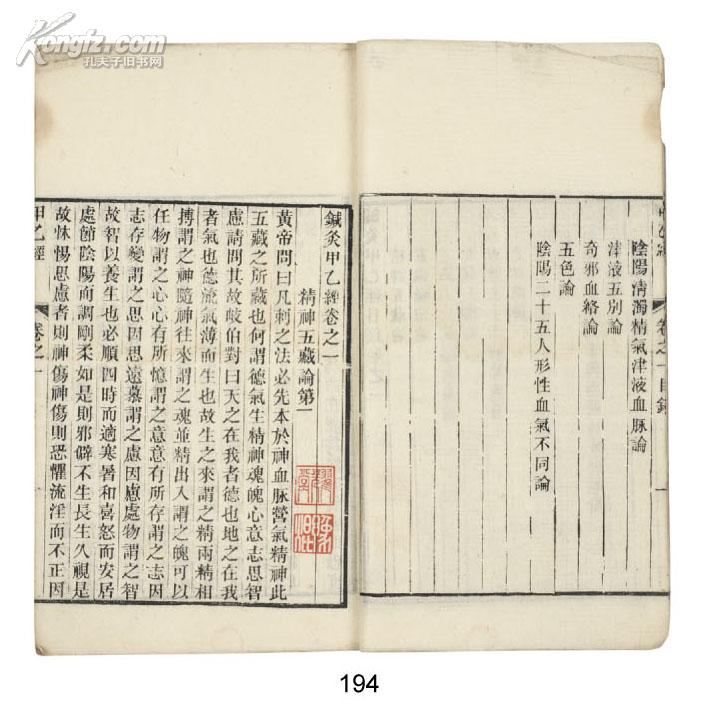 Kongfz.com
孔夫子旧书网
陰陽清濁精氣津液血脉論
津液五別論
奇邪血絡論
五色論
陰陽二十五人形性血氣不同論
卷之一目錄
鍼灸甲乙經卷之一
精神五藏論第一
黃帝問曰凡刺之法必先本於神血脉營氣精神此
五藏之所藏也何謂德氣生精神魂魄心意志思智
慮請問其故岐伯對曰天之在我者德也地之在我
者氣也德流氣薄而生也故生之來謂之精兩精相
搏謂之神隨神往來謂之魂並精出入謂之魄可以
任物謂之心心有所憶謂之意意有所存謂之志因
志存變謂之思因思遠慕謂之慮因慮處物謂之智
故智以養生也必順四時而適寒暑和喜怒而安居
處節陰陽而調剛柔如是則邪僻不生長生久視是
故怵惕思慮者則神傷神傷則恐懼流淫而不正因
甲乙經
卷之一
194